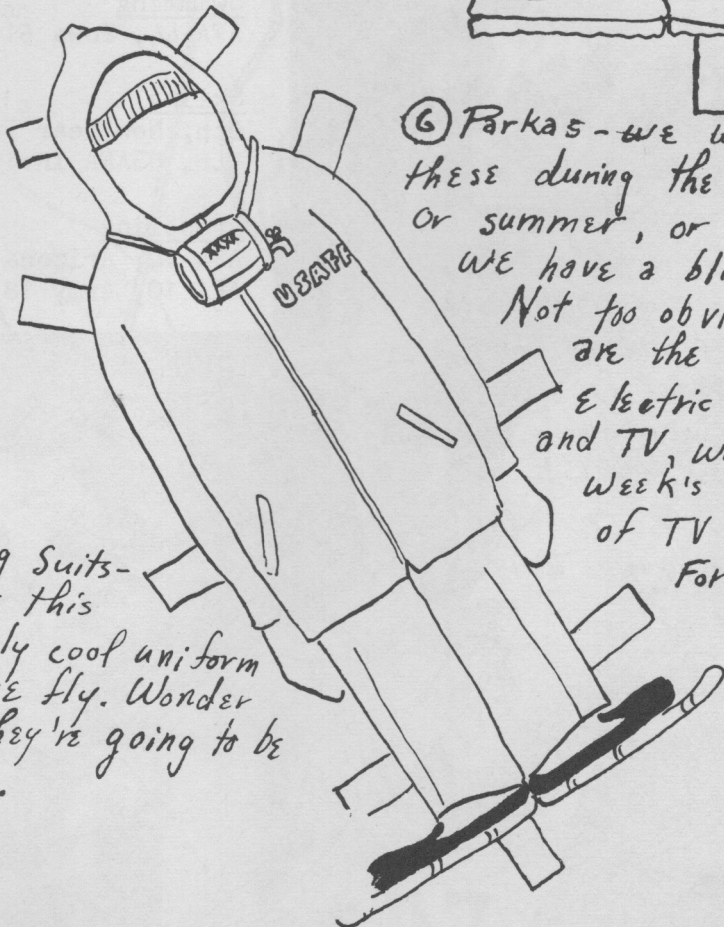 XXXX
USAFA
⑥ Parkas - we
these during the
or summer, or
we have a
Not too
are the
Electric
and TV,
week's
of TV
For
Suits-
this
cool uniform
fly. Wonder
they're going to be